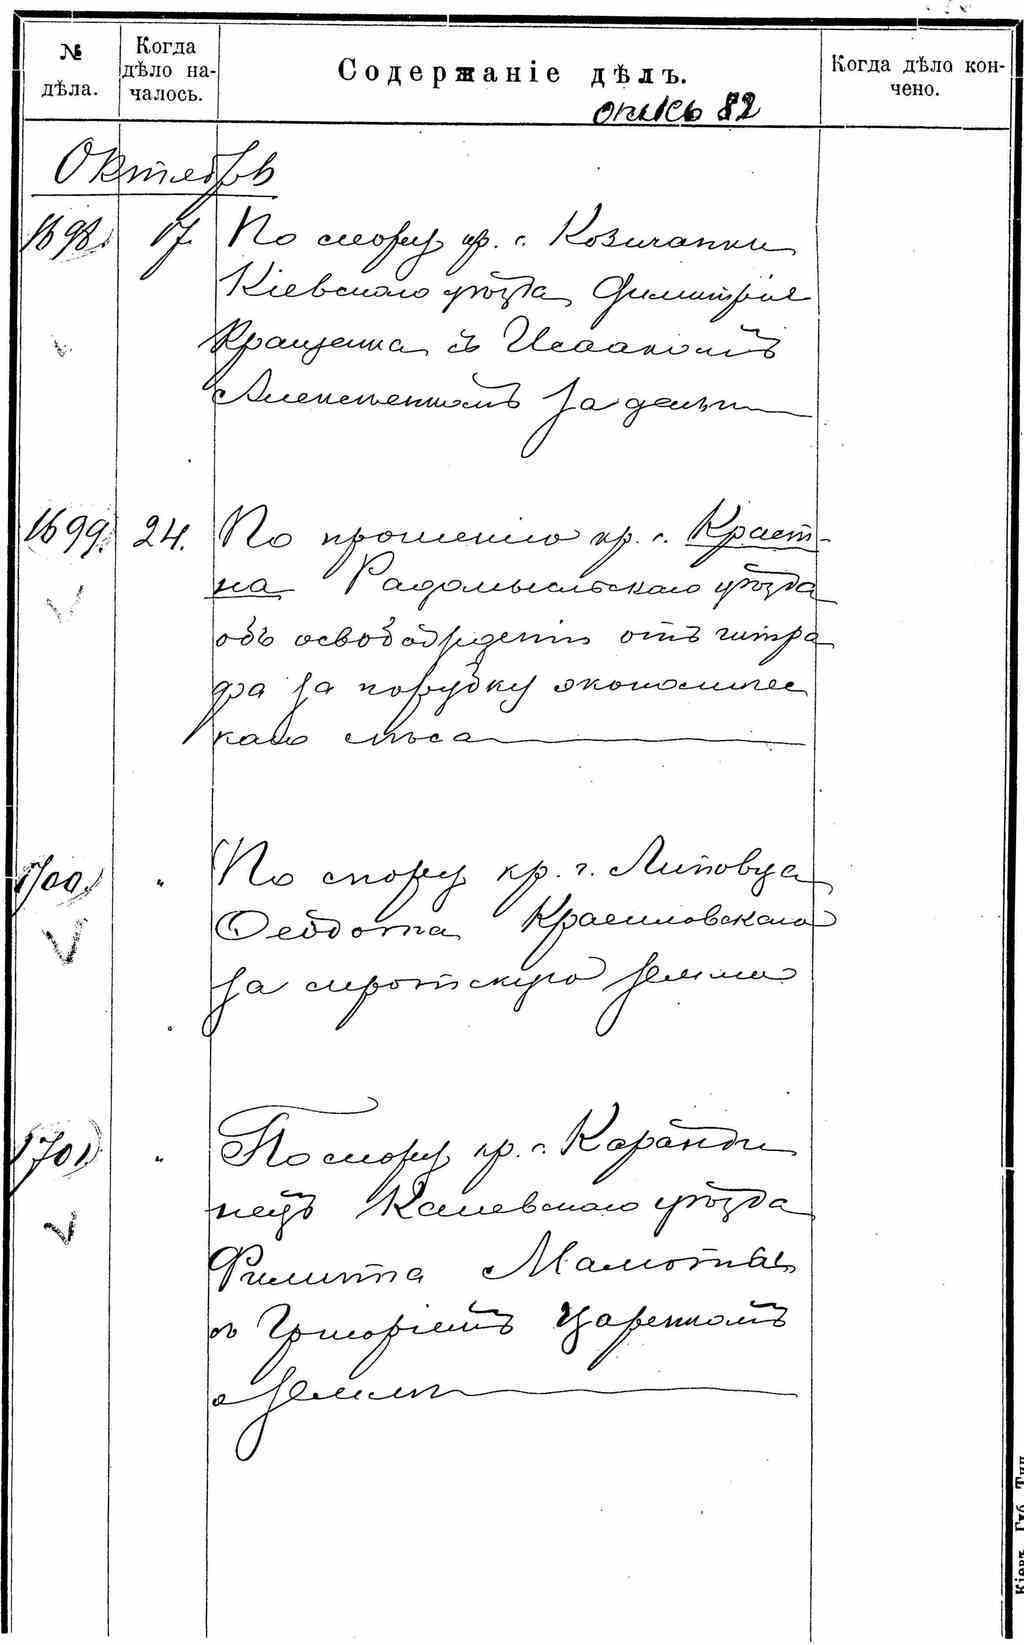 № дѣла.
Когда дѣло на-
чалось.
Содержаніе дѣлъ.
Когда дѣло кон-
чено.
опись 82
Октябрь
1698. 17. По спору кр. с. Козичанки
Кіевскаго уѣзда Димитрія
Кращенка съ Исаакомъ
Алексѣенкомъ за деньги
1699. 24. По прошенію кр. с. Краст-
на Радомысльскаго уѣзда
объ освобожденіи отъ штра
фа за порубку экономичес
каго лѣса
1700. " По спору кр. г. Липовца
Ѳеодота Красиловскаго
за сиротскую землю
1701. " По спору кр. с. Карапы
Каневскаго уѣзда
Филиппа
съ Григоріемъ Царенкомъ
о землѣ
Кіевъ. Губ. Тип.